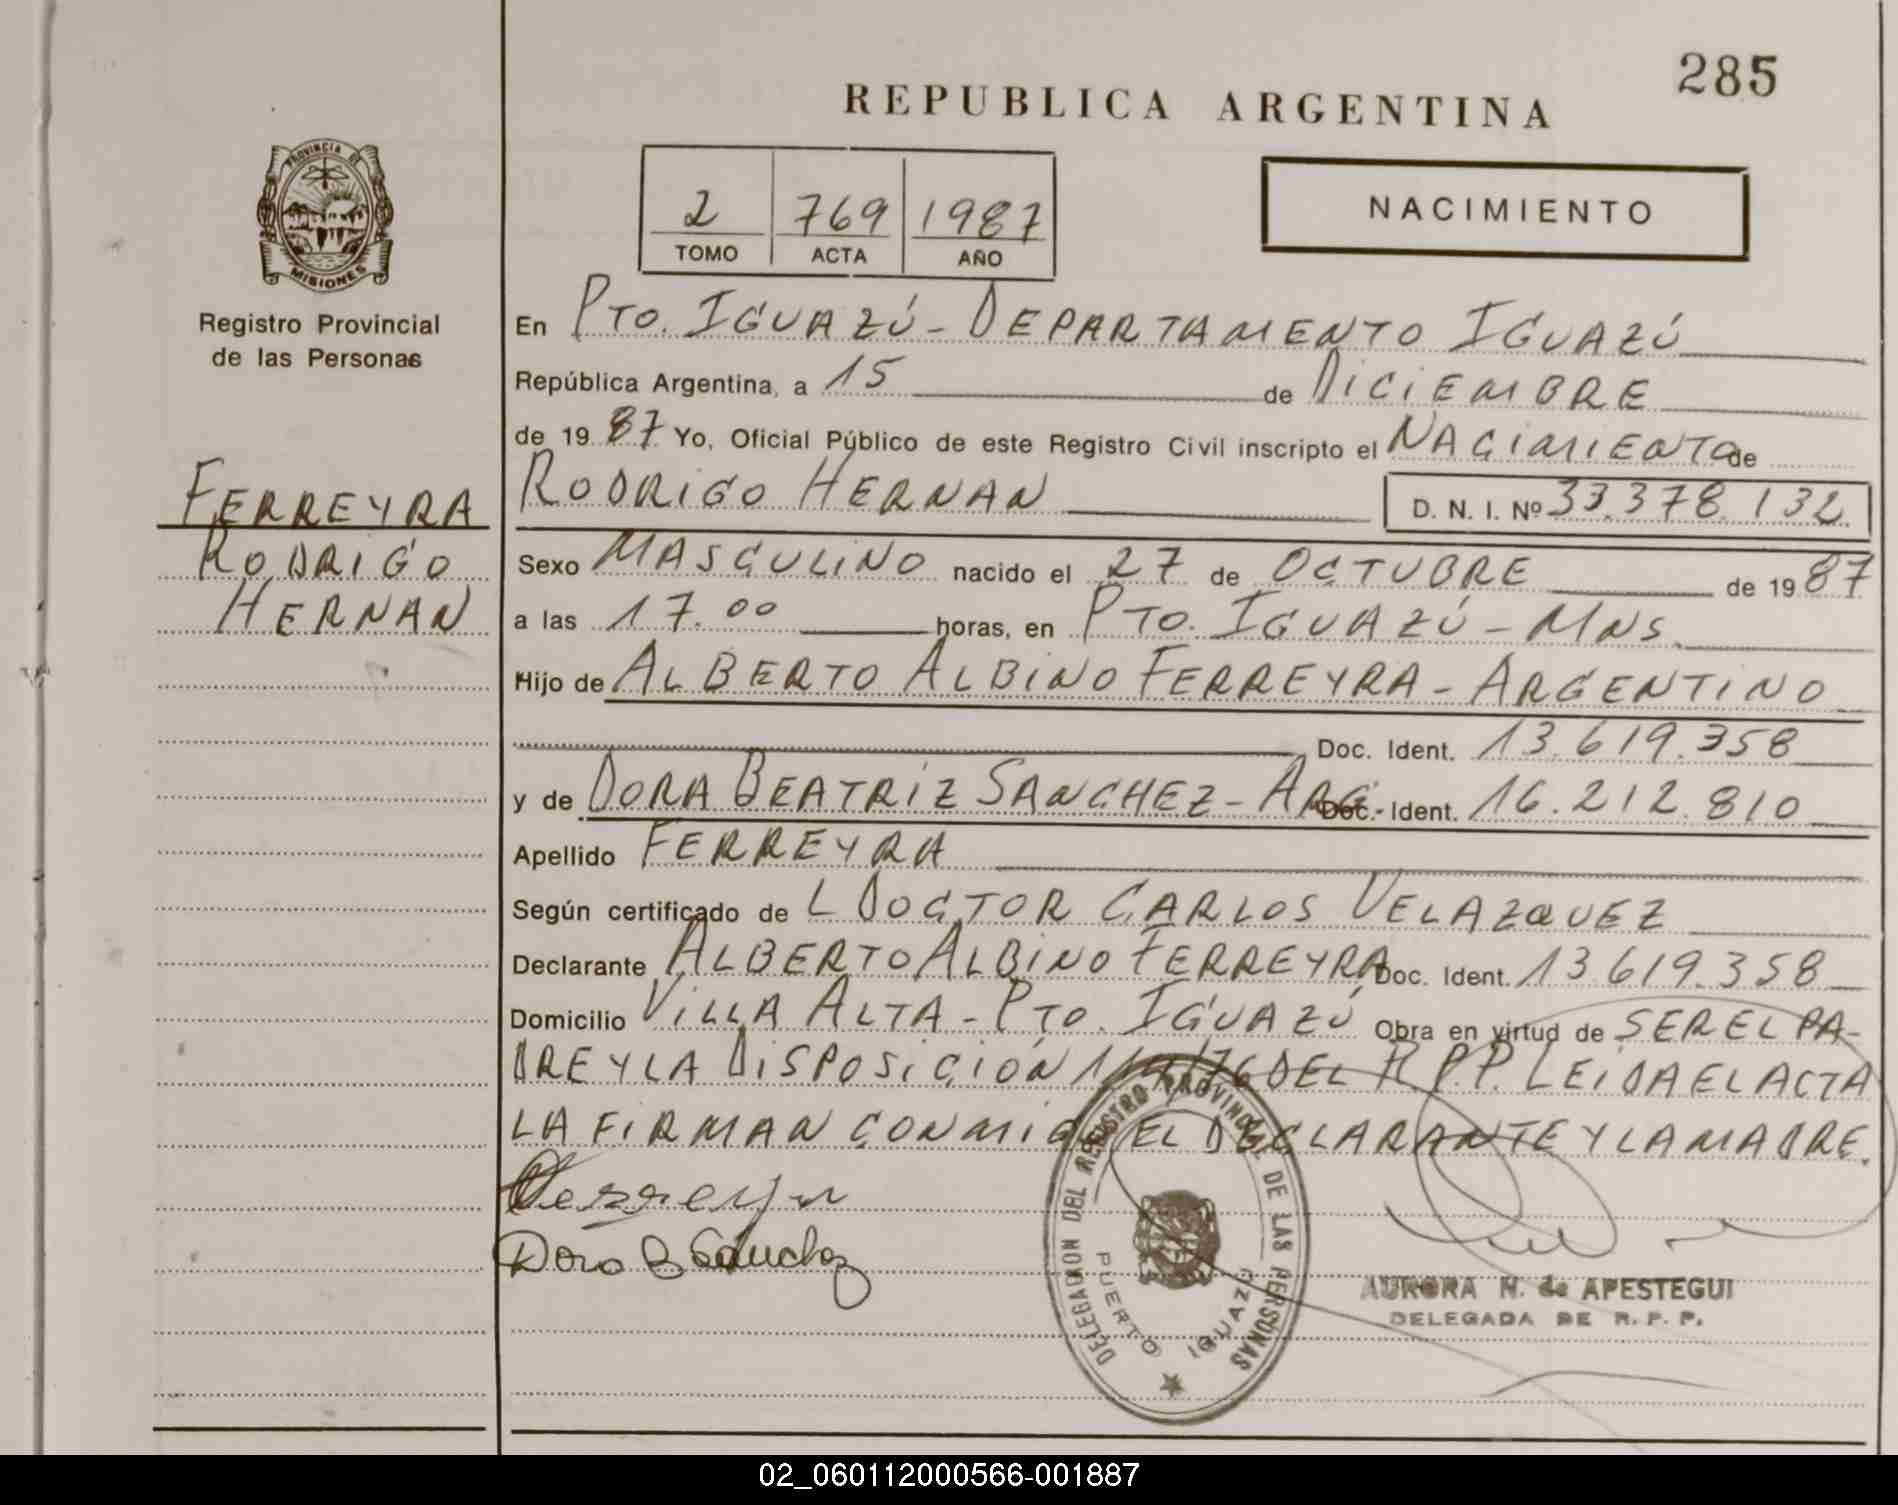 285
REPUBLICA ARGENTINA
PROVINCIA DE
MISIONES
Registro Provincial
de las Personas
2 769 1987
TOMO ACTA AÑO
NACIMIENTO
En PTO. IGUAZÚ - DEPARTAMENTO IGUAZÚ
República Argentina, a 15 de DICIEMBRE
de 19 87 Yo, Oficial Público de este Registro Civil inscripto el NACIMIENTO de
FERREYRA
RODRIGO
HERNAN
RODRIGO HERNAN D. N. I. Nº 33.378.132
Sexo MASCULINO nacido el 27 de OCTUBRE de 19 87
a las 17.00 horas, en PTO. IGUAZÚ - MNS.
Hijo de ALBERTO ALBINO FERREYRA - ARGENTINO
Doc. Ident. 13.619.358
y de DORA BEATRIZ SANCHEZ - ARG. Doc. Ident. 16.212.810
Apellido FERREYRA
Según certificado de L DOCTOR CARLOS VELAZQUEZ
Declarante ALBERTO ALBINO FERREYRA Doc. Ident. 13.619.358
Domicilio VILLA ALTA - PTO. IGUAZÚ Obra en virtud de SER EL PA-
DRE Y LA DISPOSICIÓN DEL R.P.P. LEIDA EL ACTA
LA FIRMAN CONMIGO EL DECLARANTE Y LA MADRE.
Ferreyra
Dora B Sanchez
DELEGACION DEL REGISTRO PROVINCIAL DE LAS PERSONAS
PUERTO IGUAZU
AURORA N. de APESTEGUI
DELEGADA DE R. P. P.
02_060112000566-001887